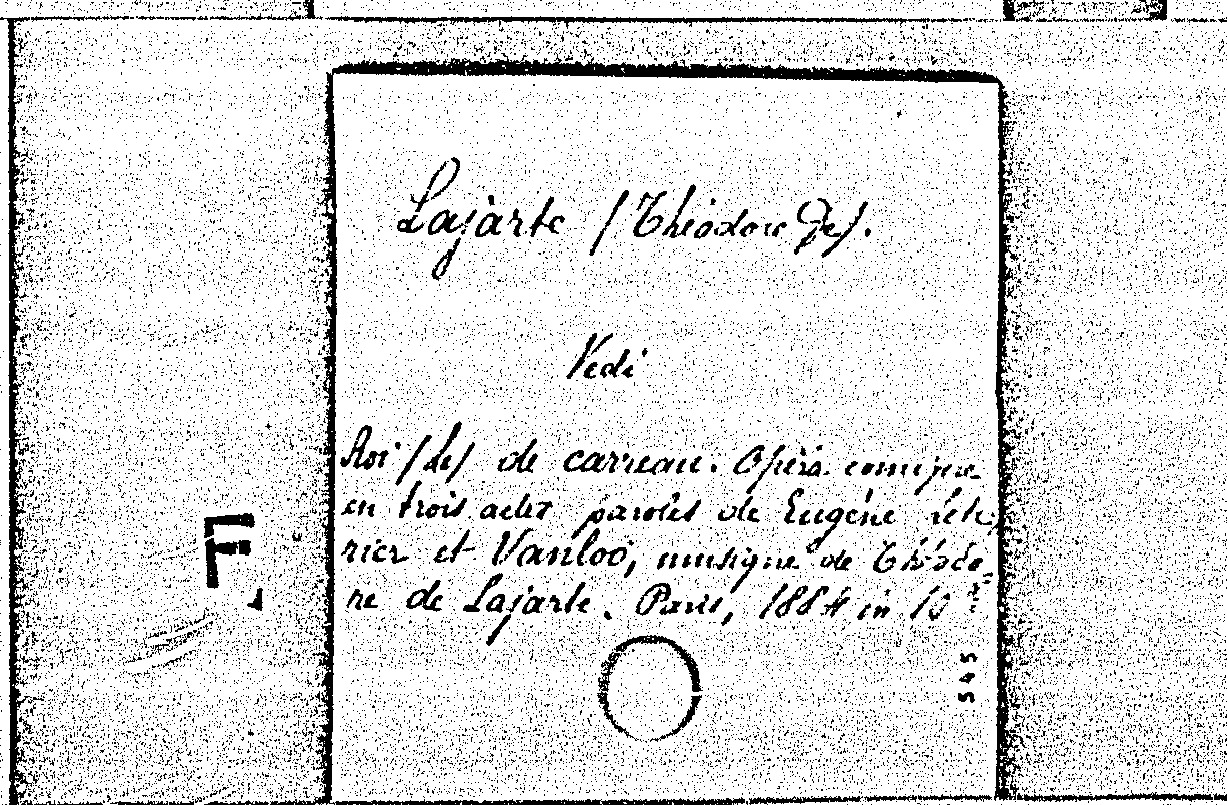 Lajarte /Théodore De/.
Vedi
Roi /Le/ de carreau. Opéra comique
en trois actes paroles de Eugène Leter
rier et Vanloo, musique de Théodo-
re de Lajarte. Paris, 1884 in
545
F